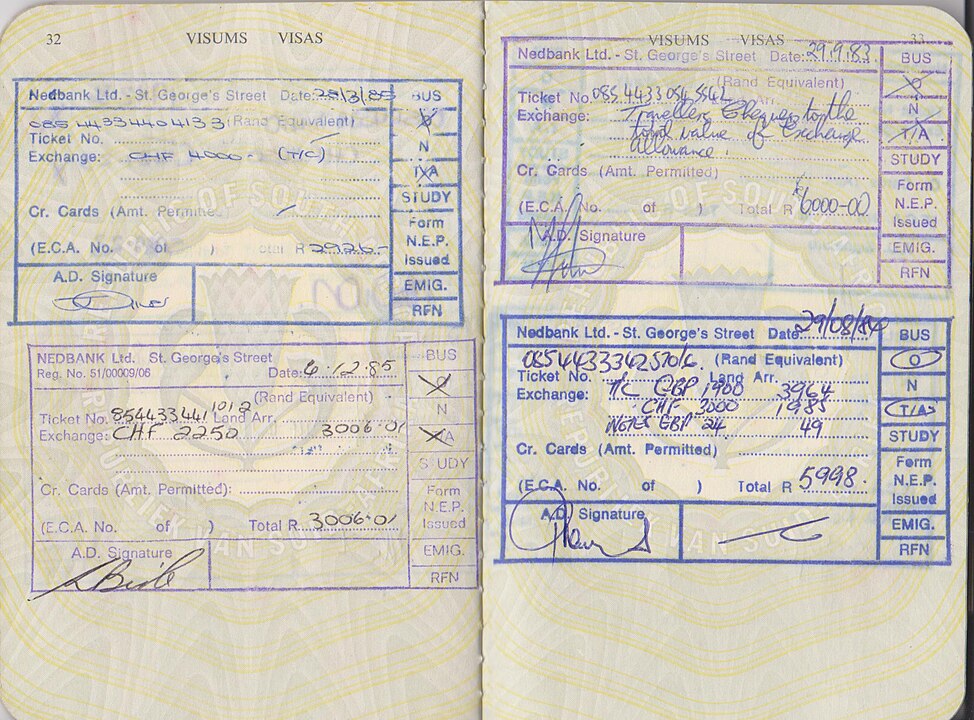 32 VISUMS VISAS
Nedbank Ltd. - St. George's Street Date: 28/3/85 BUS
085 4433 4404133 (Rand Equivalent) O
Ticket No. N
Exchange: CHF 4000 - (T/C) T/A
STUDY
Cr. Cards (Amt. Permitte
Form
N.E.P.
Issued
(E.C.A. No. of ) otal R 2926-
EMIG.
A.D. Signature
RFN
NEDBANK Ltd. St. George's Street BUS
Reg. No. 51/00009/06 Date: 6.12.85
(Rand Equivalent) O
N
Ticket No. 854433441 1012 Land Arr.
Exchange: CHF 2250 3006-01 T/A
STUDY
Cr. Cards (Amt. Permitted):
Form
N.E.P.
Issued
(E.C.A. No. of ) Total R 3006-01
A.D. Signature EMIG.
RFN
VISUMS VISAS 33
Nedbank Ltd. - St. George's Street Date: 29.9.83 BUS
(Rand Equivalent) O
Ticket No. Arr. N
Exchange: Travellers Cheques to the
total value of Exchange T/A
Allowance.
STUDY
Cr. Cards (Amt. Permitted)
Form
N.E.P.
Issued
(E.C.A. No. of ) Total R 6000-00
A.D. Signature EMIG.
RFN
Nedbank Ltd. - St. George's Street Date: 29/08/84 BUS
(Rand Equivalent) O
Ticket No. Land Arr. N
Exchange: T/C GBP 1900 3964
CHF 3000 1985 T/A
NOTES GBP 24 49
STUDY
Cr. Cards (Amt. Permitted)
Form
N.E.P.
Issued
(E.C.A. No. of ) Total R 5998.
A.D. Signature EMIG.
RFN